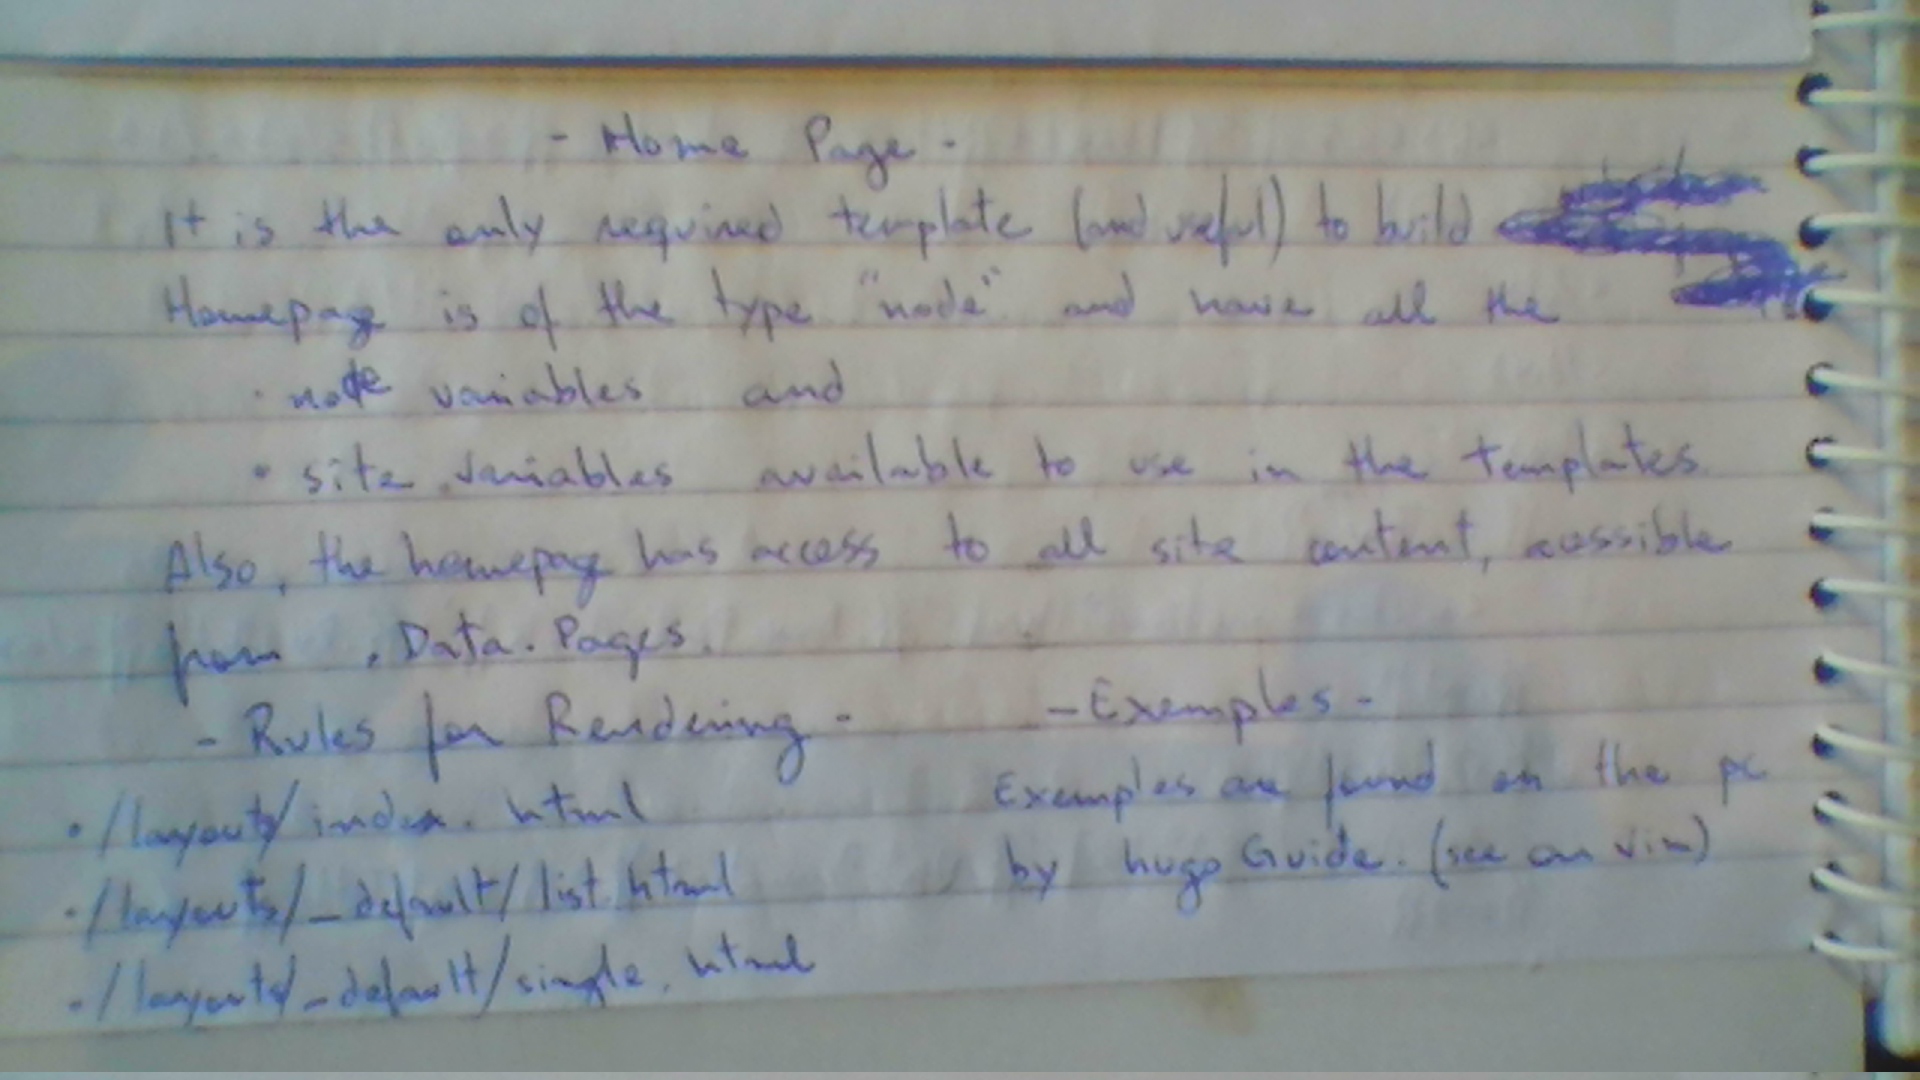 - Home Page -
It is the only required template (and useful) to build
Homepage is of the type "node" and have all the
· node variables and
• site variables available to use in the templates
Also, the homepage has access to all site content, acessible
from .Data.Pages.
- Rules for Rendering -
• /layouts/index.html
• /layouts/_default/list.html
• /layouts/_default/single.html
- Exemples -
Exemples are found on the pc
by hugo Guide. (see on vim)